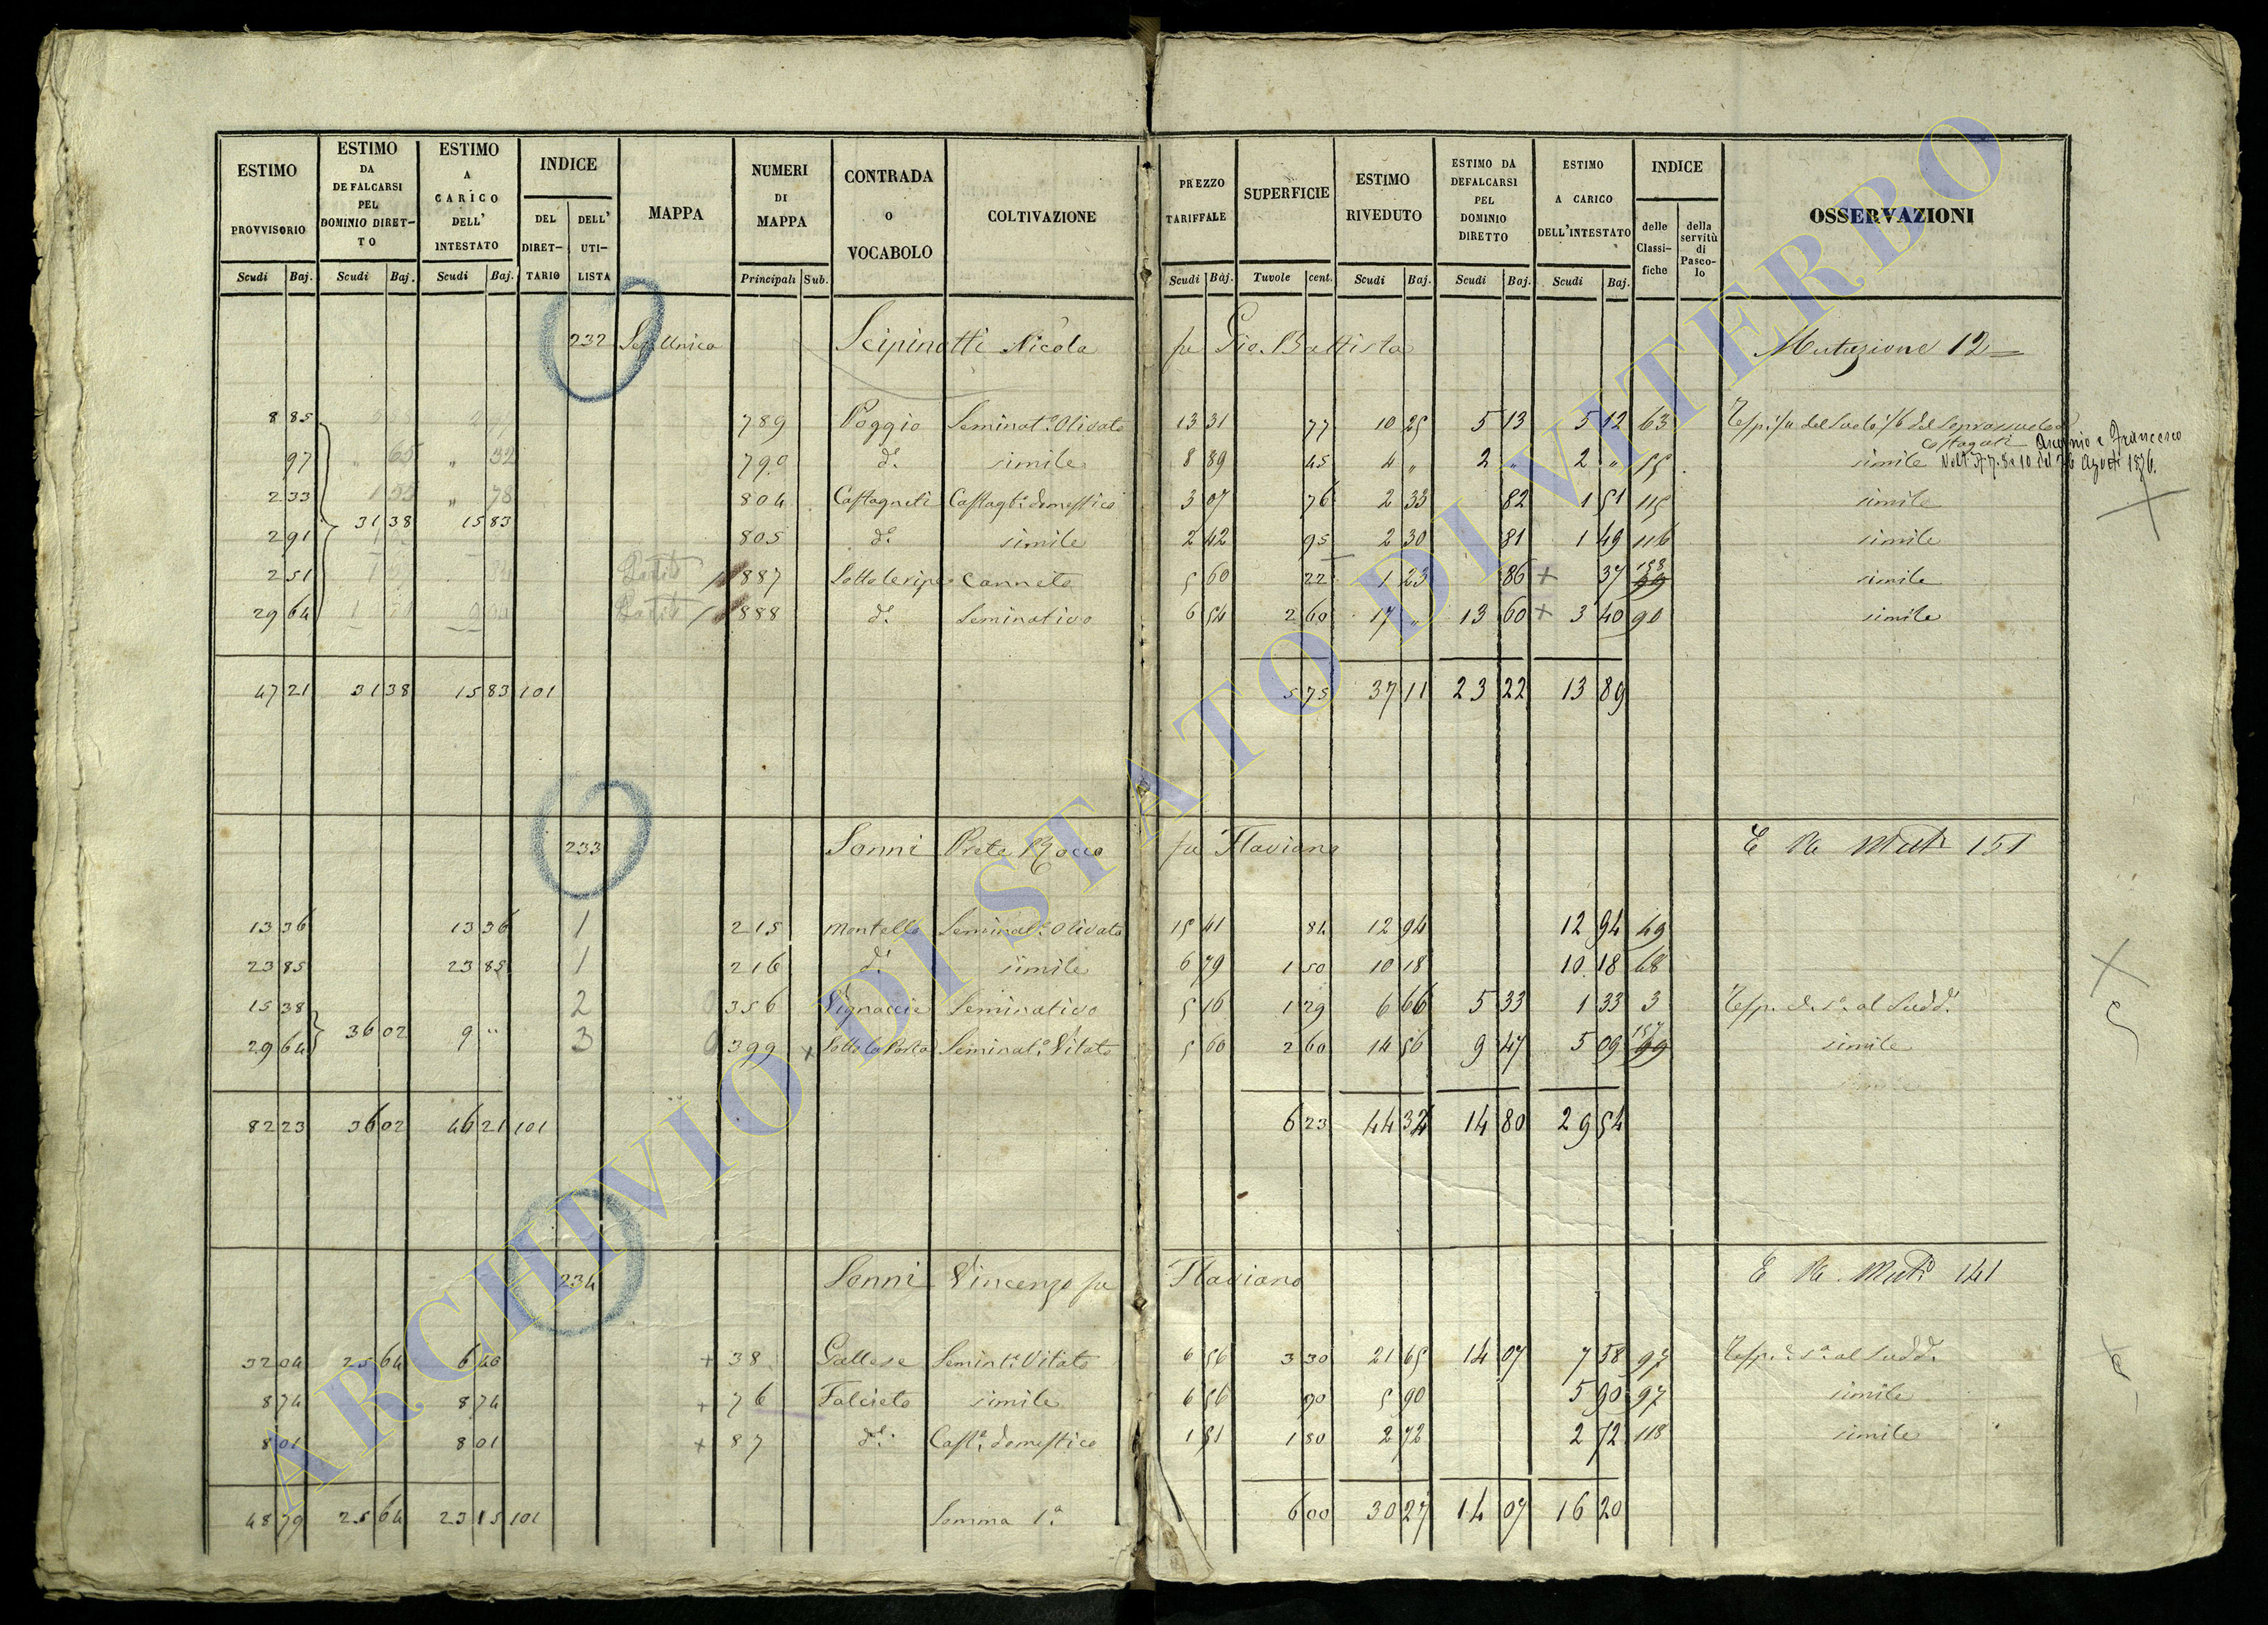 ESTIMO PROVVISORIO Scudi Baj.
ESTIMO DA DEFALCARSI PEL DOMINIO DIRET-TO Scudi Baj.
ESTIMO A CARICO DELL' INTESTATO Scudi Baj.
INDICE DEL DIRET-TARIO DELL' UTI-LISTA
MAPPA
NUMERI DI MAPPA Principali Sub.
CONTRADA O VOCABOLO
COLTIVAZIONE
PREZZO TARIFFALE Scudi Baj.
SUPERFICIE Tavole cent.
ESTIMO RIVEDUTO Scudi Baj.
ESTIMO DA DEFALCARSI PEL DOMINIO DIRETTO Scudi Baj.
ESTIMO A CARICO DELL'INTESTATO Scudi Baj.
INDICE delle Classi-fiche della servitù di Pasco-lo
OSSERVAZIONI
232 Sez. Unica Scipinotti Nicola fu Gio. Battista Mutazione 12
8 85 789 Poggio Seminat.o Olivato 13 31 77 10 25 5 13 5 12 63
97 " 65 " 32 790 d.o simile 8 89 45 4 " 2 " 2 " 55 simile
2 33 1 55 " 78 804 Castagneti Castag.to domestico 3 07 76 2 33 82 1 51 115 simile
2 91 31 38 15 83 805 d.o simile 2 42 95 2 30 81 1 49 116 simile
2 51 887 Sotto le ripe Canneto 5 60 22 1 23 86 + 37 158 99 simile
29 64 888 d.o Seminativo 6 54 2 60 17 " 13 60 + 3 40 90 simile
47 21 31 38 15 83 101 5 75 37 11 23 22 13 89
233 Sonni Prete Rocco fu Flaviano E Ra Mut. 151
13 36 13 36 1 215 Montello Seminat.o Olivato 15 41 84 12 94 12 94 49
23 85 23 85 1 216 d.o simile 6 79 1 50 10 18 10 18 68
15 38 2 356 Vignaccie Seminativo 5 16 1 29 6 66 5 33 1 33 3 Resp. d. s.a al Sudd.o
29 64 36 02 9 " 3 399 + Sotto la Porta Seminat.o Vitato 5 60 2 60 14 56 9 47 5 09 157 99 simile
82 23 36 02 46 21 101 6 23 44 34 14 80 29 54
234 Sonni Vincenzo fu Flaviano E Ra Mut. 141
32 04 25 64 6 40 + 38 Gallese Semin.to Vitato 6 56 3 30 21 65 14 07 7 58 97 Resp. d. s.a al Sudd.
8 74 8 74 + 76 Falcieto simile 6 56 90 5 90 5 90 97 simile
8 01 8 01 + 87 d.o Cast.o domestico 1 51 1 80 2 72 2 72 118 simile
48 79 25 64 23 15 101 Somma 1.a 6 00 30 27 14 07 16 20
ARCHIVIO DI STATO DI VITERBO